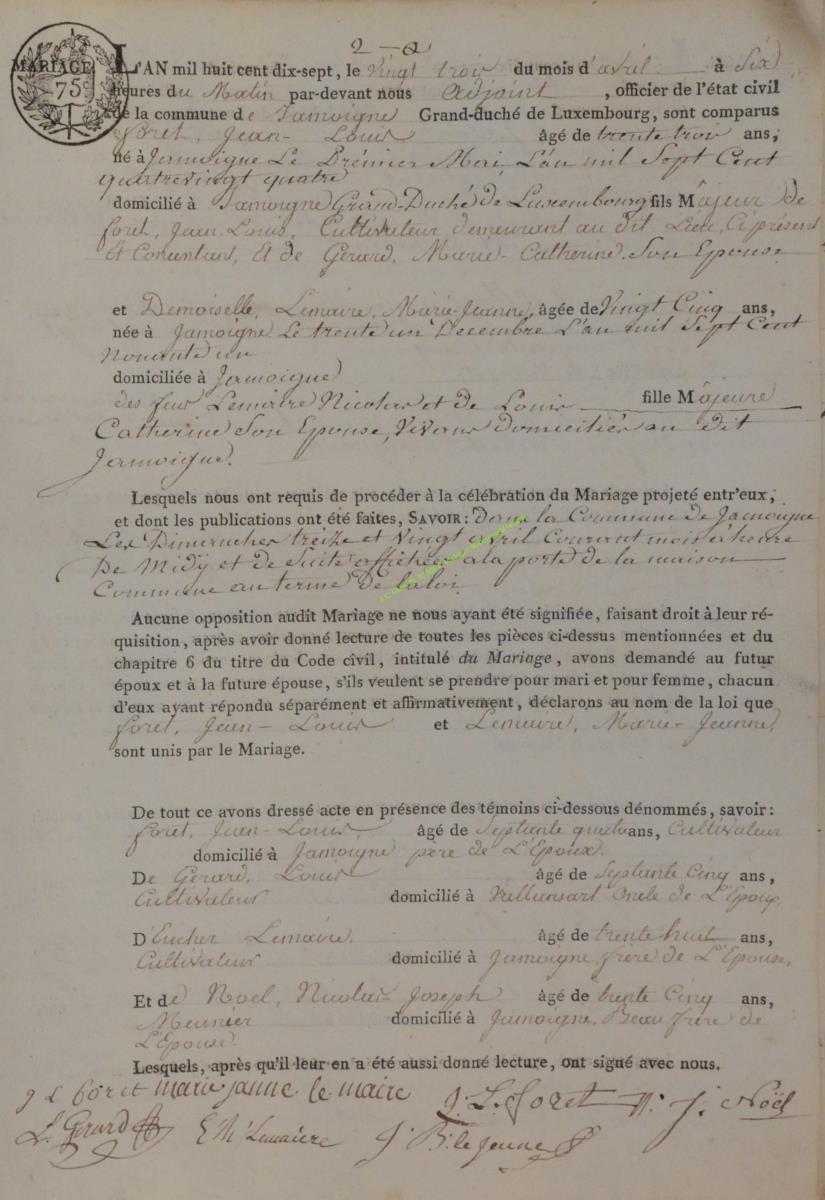 2 - a
MARIAGE
75c
L'AN mil huit cent dix-sept, le Vingt trois du mois d'avril à Six
heures du Matin par-devant nous Adjoint, officier de l'état civil
de la commune de Jamoigne Grand-duché de Luxembourg, sont comparus
foret, Jean-Louis âgé de trente trois ans,
né à Jamoigne Le Prémier Mai, L'an mil Sept Cent
quatrevingt quatre
domicilié à Jamoigne Grand-Duché de Luxembourg fils Majeur de
foret, Jean Louis, Cultivateur demeurant au dit Lieu, Ci présent
Et Consentant, Et de Gerard, Marie-Catherine, Son Epouse
et Demoiselle, Lemaire, Marie-Jeanne, âgée de Vingt Cinq ans,
née à Jamoigne Le trente un Decembre L'an mil Sept Cent
Nonante un
domiciliée à Jamoigne
des feus Lemaire Nicolas et de Louis fille Majeure
Catherine Son Epouse, Vivans domiciliés au dit
Jamoigne.
Lesquels nous ont requis de procéder à la célébration du Mariage projeté entr'eux,
et dont les publications ont été faites, SAVOIR: dans la Commune de Jamoigne
Les Dimanches treize et Vingt avril Courant mois a heure
De Midÿ et de Suite affichées a la porte de la maison
Commune au terme de la loi
Aucune opposition audit Mariage ne nous ayant été signifiée, faisant droit à leur ré-
quisition, après avoir donné lecture de toutes les pièces ci-dessus mentionnées et du
chapitre 6 du titre du Code civil, intitulé du Mariage, avons demandé au futur
époux et à la future épouse, s'ils veulent se prendre pour mari et pour femme, chacun
d'eux ayant répondu séparément et affirmativement, déclarons au nom de la loi que
foret, Jean-Louis et Lemaire, Marie-Jeanne,
sont unis par le Mariage.
De tout ce avons dressé acte en présence des témoins ci-dessous dénommés, savoir:
foret, Jean-Louis, âgé de Septante quatre ans, Cultivateur
domicilié à Jamoigne père de L'Epoux.
De Gerard, Louis âgé de Septante Cinq ans,
Cultivateur domicilié à Oncle de L'Epoux,
D'Eucher Lemaire. âgé de trente huit ans,
Cultivateur domicilié à Jamoigne frère de L'Epouse,
Et de Noel, Nicolas Joseph âgé de trente Cinq ans,
Meunier domicilié à Jamoigne, Beau frère de
L'Epouse.
Lesquels, après qu'il leur en a été aussi donné lecture, ont signé avec nous.
j l foret marie janne le maire J. L. foret N. J. Noël
L. Gerard E h Lemaiere J B. le jeune